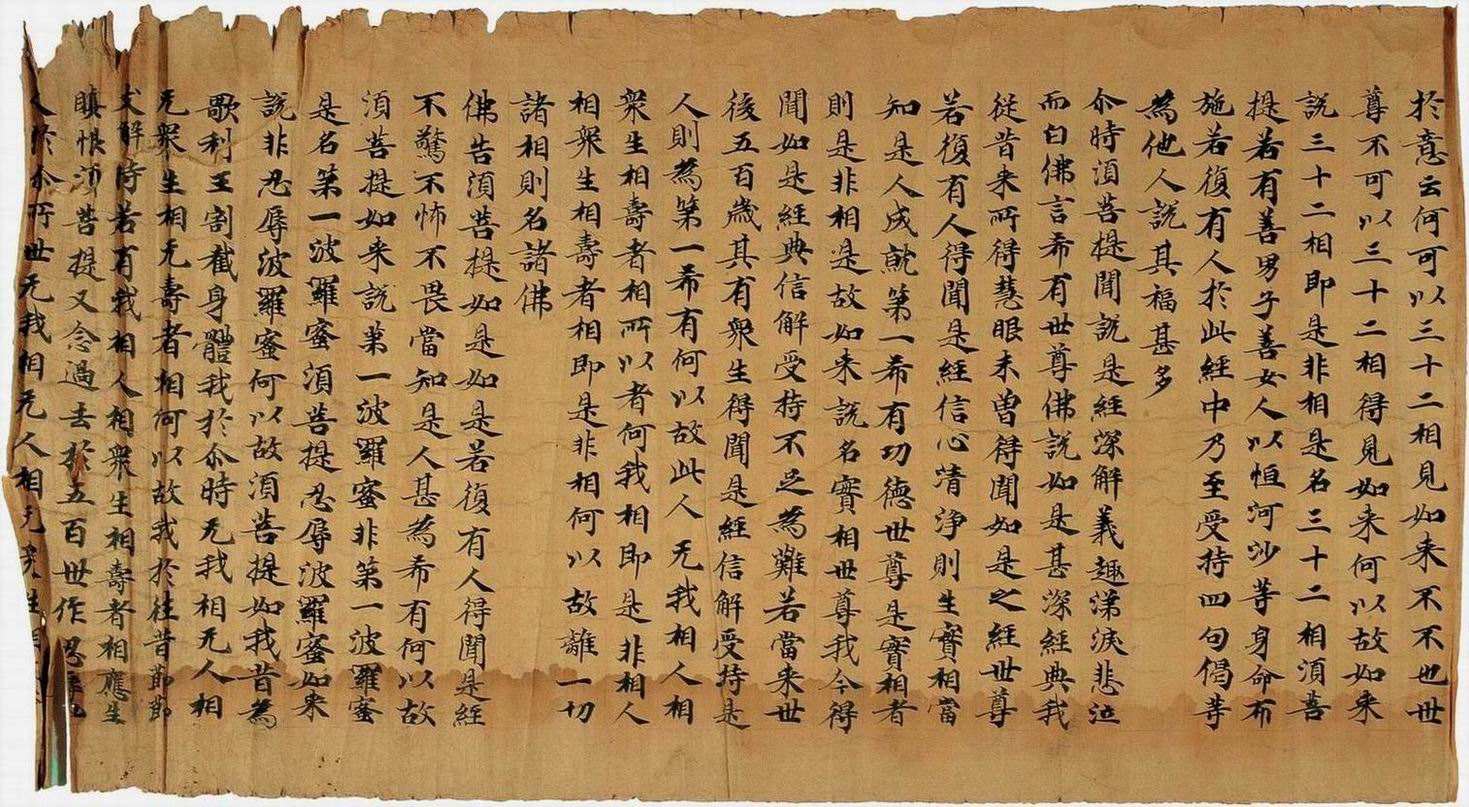 於意云何可以三十二相見如来不不也世
尊不可以三十二相得見如来何以故如来
説三十二相即是非相是名三十二相湏菩
提若有善男子善女人以恒河沙等身命布
施若復有人於此經中乃至受持四句偈等
為他人説其福甚多
尒時湏菩提聞説是經深解義趣涕淚悲泣
而白佛言希有世尊佛説如是甚深經典我
従昔来所得慧眼未曽得聞如是之經世尊
若復有人得聞是經信心清浄則生實相當
知是人成就第一希有功德世尊是實相者
則是非相是故如来説名實相世尊我今得
聞如是經典信解受持不足為難若當来世
後五百歳其有衆生得聞是經信解受持是
人則為第一希有何以故此人无我相人相
衆生相壽者相所以者何我相即是非相人
相衆生相壽者相即是非相何以故離一切
諸相則名諸佛
佛告湏菩提如是如是若復有人得聞是經
不驚不怖不畏當知是人甚為希有何以故
湏菩提如来説第一波羅蜜非第一波羅蜜
是名第一波羅蜜湏菩提忍辱波羅蜜如来
説非忍辱波羅蜜何以故湏菩提如我昔為
歌利王割截身體我於尒時无我相无人相
无衆生相无壽者相何以故我於往昔節節
支解時若有我相人相衆生相壽者相應生
瞋恨湏菩提又念過去於五百世作忍辱
人於尒所世无我相无人相无衆生相